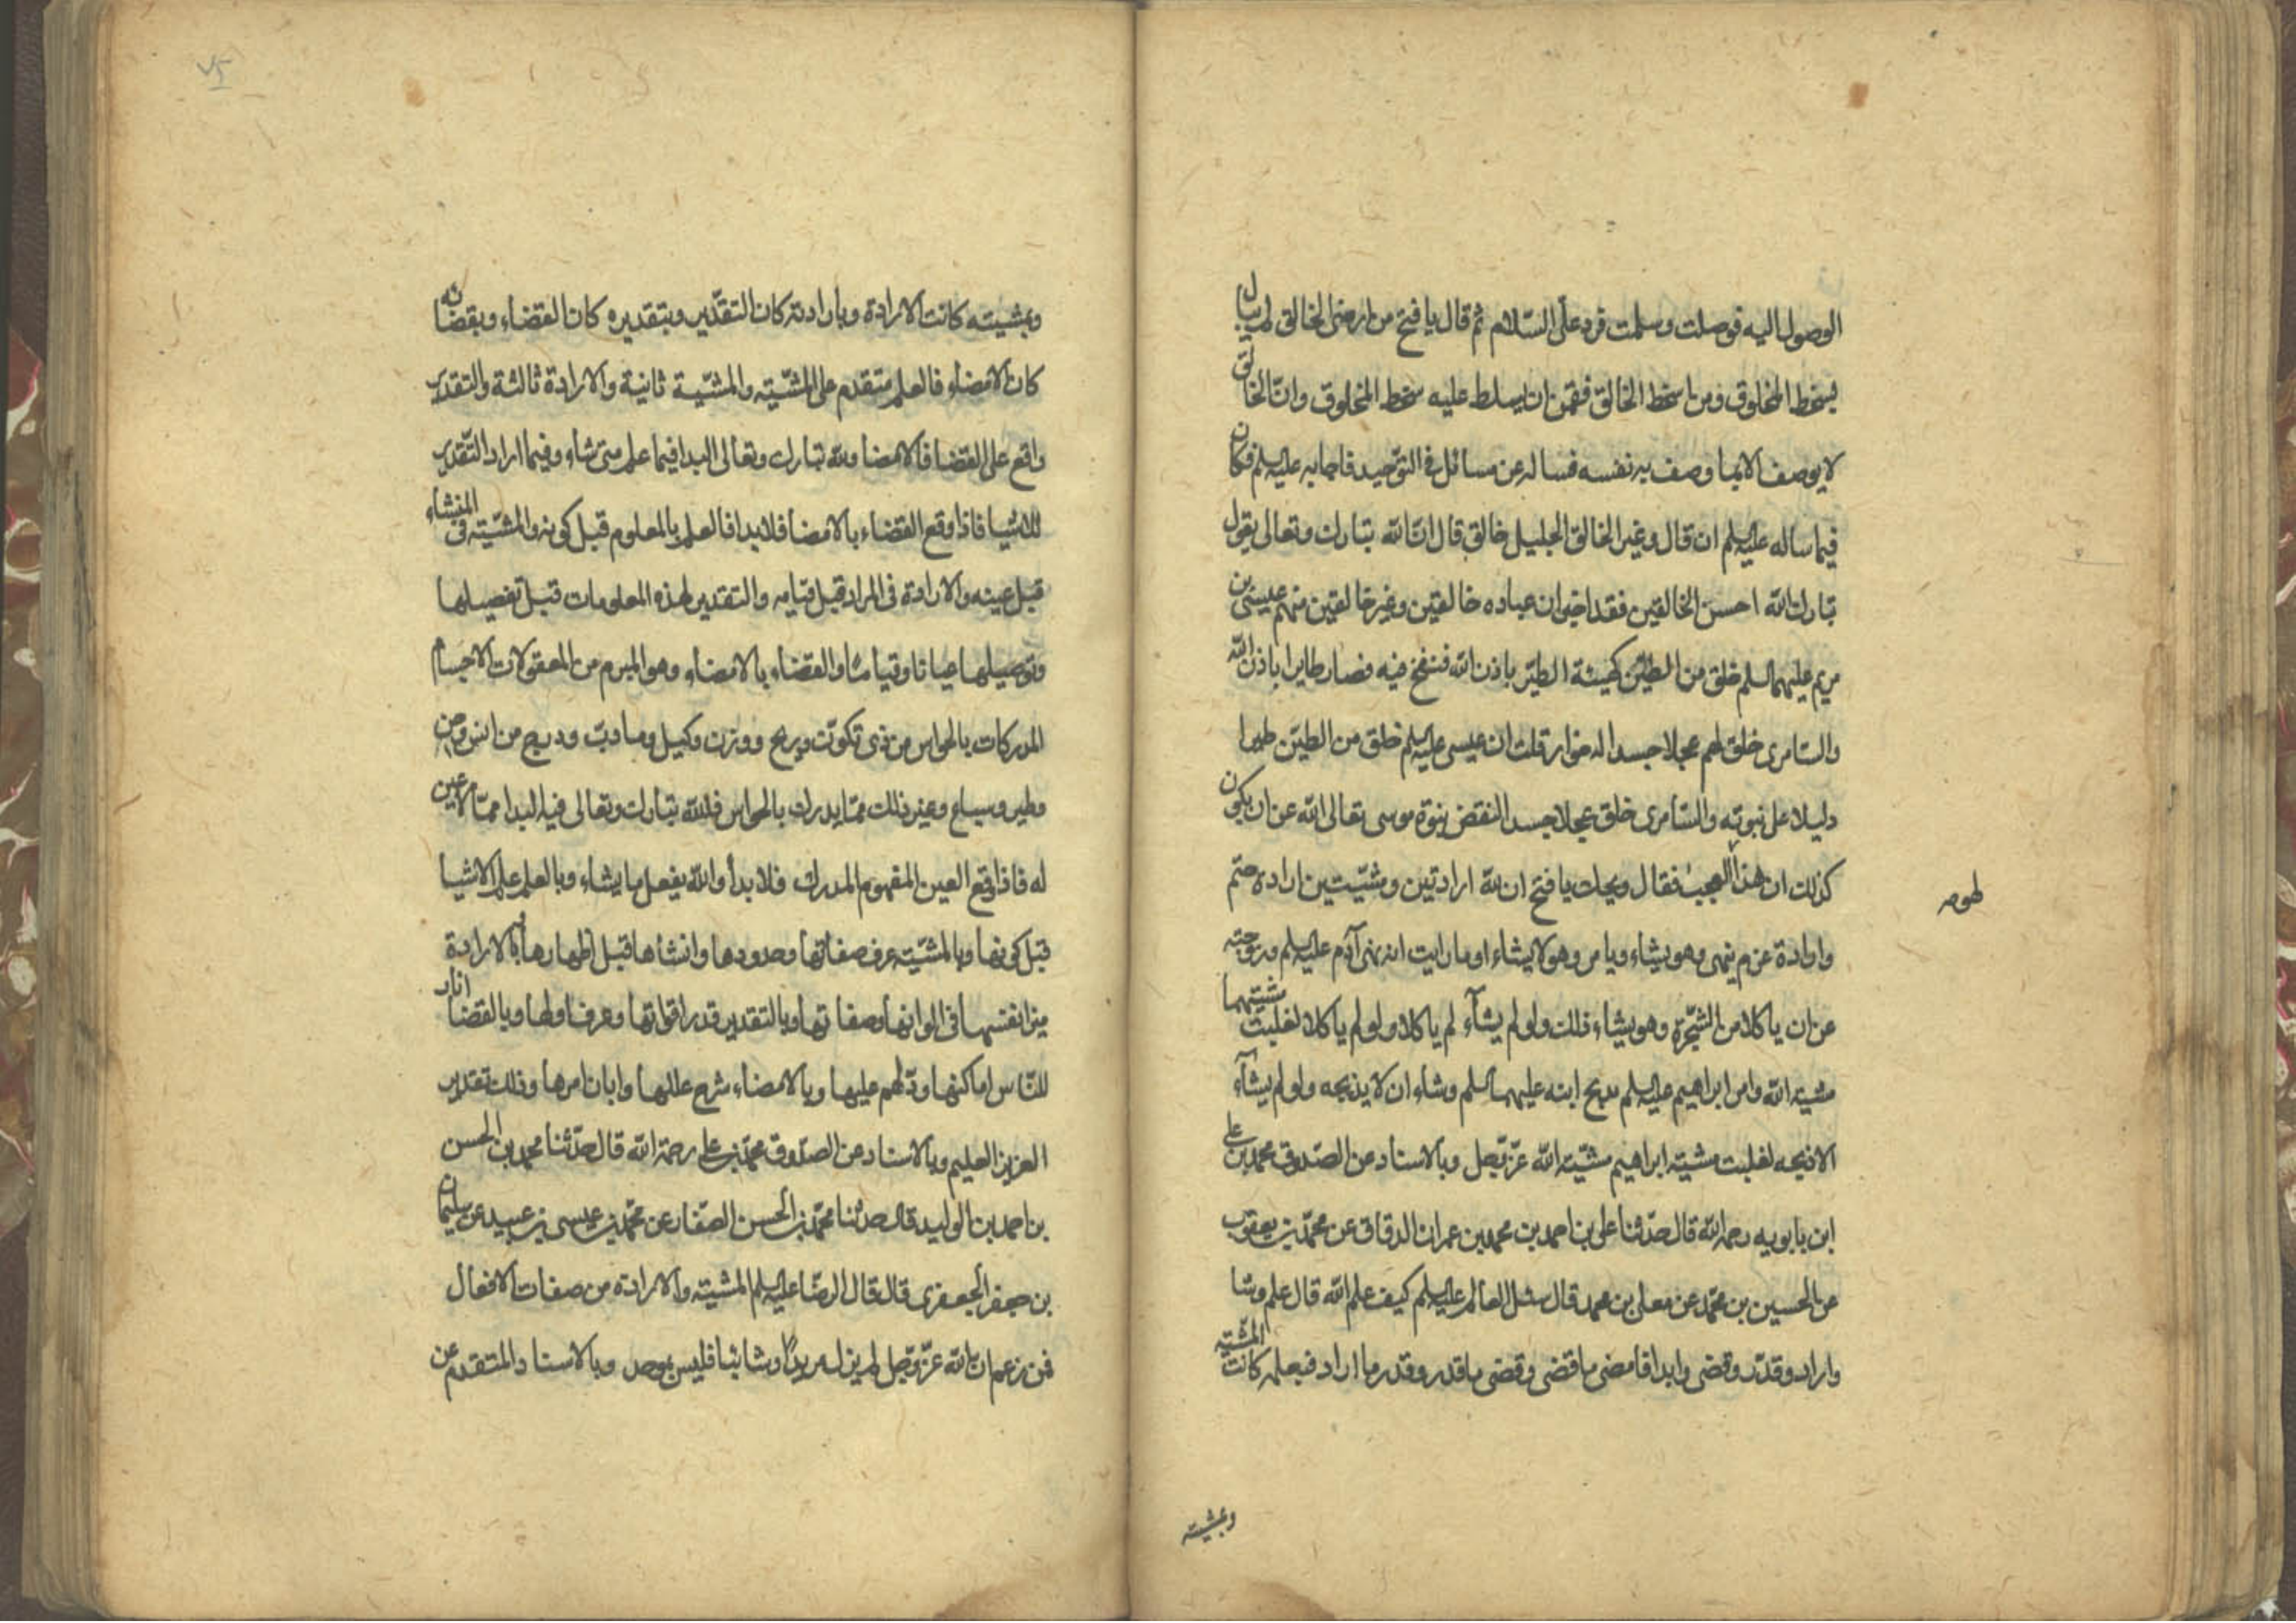 الوصول اليه فوصلت وسلمت فرد علىّ السّلام ثم قال يا فتح من ارضى الخالق لم يبال
بسخط المخلوق ومن اسخط الخالق فقمن ان يسلط عليه سخط المخلوق وانّ الخالق
لا يوصف الا بما وصف به نفسه فساله عن مسائل فى التوحيد فاجابه عليه السلم فكان
فيما ساله عليه السلم ان قال وغير الخالق الجليل خالق قال انّ الله تبارك وتعالى يقول
تبارك الله احسن الخالقين فقد اخبر ان عباده خالقين وغير خالقين منهم عيسى بن
مريم عليهما السلم خلق من الطين كهيئة الطير باذن الله فنفخ فيه فصار طايرا باذن الله
والسّامرى خلق لهم عجلا جسدا له خوار قلت ان عيسى عليه السلم خلق من الطين طيرا
دليلا على نبوته والسّامرى خلق عجلا جسدا لنقض نبوة موسى تعالى الله عن ان يكون
كذلك ان هذا العجب فقال ويحك يا فتح ان لله ارادتين ومشيّتين ارادة حتم
لهو ص
وارادة عزم ينهى وهو يشاء ويامر وهو لا يشاء اوما رايت انه نهى آدم عليه السلم وزوجته
عن ان ياكلا من الشجرة وهو يشاء ذلك ولو لم يشآء لم ياكلا ولو لم ياكلا لغلبت مشيتهما
مشية الله وامر ابراهيم عليه السلم بذبح ابنه عليهما السلم وشاء ان لا يذبحه ولو لم يشآء
الا ذبحه لغلبت مشية ابراهيم مشيّة الله عزّ وجل وبالاسناد عن الصّدوق محمد بن على
ابن بابويه رحمه الله قال حدّثنا على بن احمد بن محمد بن عمران الدقاق عن محمّد بن يعقوب
عن الحسين بن محمّد عن معلى بن محمد قال سئل العالم عليه السلم كيف علم الله قال علم وشا
واراد وقدّر وقضى وابدا فامضى ما قضى وقضى ما قدر وقدر ما اراد فبعلمه كانت المشيّة
وبمشيته
وبمشيته كانت الارادة وبارادته كان التقدير وبتقديره كان القضاء وبقضائه
كان الامضاء فالعلم متقدم على المشيّة والمشيّة ثانية والارادة ثالثة والتقدير
واقع على القضا فالامضا ولله تبارك وتعالى البدا فيما علم متى شاء وفيما اراد التّقدير
للاشيا فاذا وقع القضاء بالامضا فلا بدا فالعلم بالمعلوم قبل كونه والمشيّة فى المنشاء
قبل عينه والارادة فى المراد قبل قيامه والتقدير لهذه المعلومات قبل تفصيلها
وتوصيلها عيانا وقياما والقضاء بالامضاء وهو المبرم من المعقولات الاجسام
المدركات بالحواس من ذى تكوّن وريح ووزن وكيل وما دبّ ودرج من انس وجن
وطير وسباع وغير ذلك ممّا يدرك بالحواس فلله تبارك وتعالى فيه البدا ممّا لا عين
له فاذا وقع العين المفهوم المدرك فلا بدأ والله يفعل ما يشاء وبالعلم علم الاشيا
قبل كونها وبالمشيّة عرف صفاتها وحدودها وانشاها قبل اظهارها وبالارادة
ميز انفسها فى الوانها وصفاتها وبالتقدير قدر اقواتها وعرف اولها وبالقضا ابان
للنّاس اماكنها ودلّهم عليها وبالامضاء شرح عللها وابان امرها وذلك تقدير
العزيز العليم وبالاسناد عن الصّدوق محمّد بن على رحمة الله قال حدّثنا محمد بن الحسن
بن احمد بن الوليد قال حدثنا محمّد بن الحسن الصفار عن محمّد بن عيسى بن عبيد عن سليمان
بن جعفر الجعفرى قال قال الرضا عليه السلم المشيّة والارادة من صفات الافعال
فمن زعم ان الله عزّ وجل لم يزل مريدًا وشائيا فليس بموحد وبالاسناد المتقدم عن